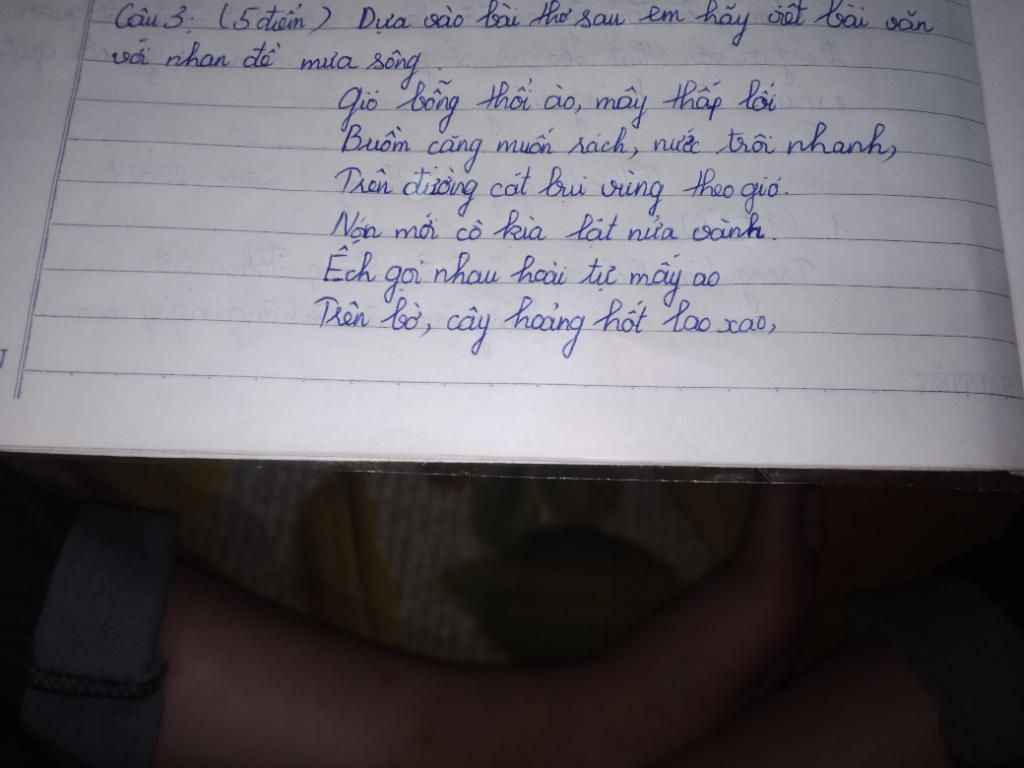 Câu 3: (5 điểm) Dựa vào bài thơ sau em hãy viết bài văn
với nhan đề mưa sông.
Gió bỗng thổi ào, mây thấp lối
Buồm căng muốn rách, nước trôi nhanh,
Trên đường cát bụi vùng theo gió.
Nón mới cô kia lật nửa vành.
Ếch gọi nhau hoài tự mấy ao
Trên bờ, cây hoảng hốt lao xao,